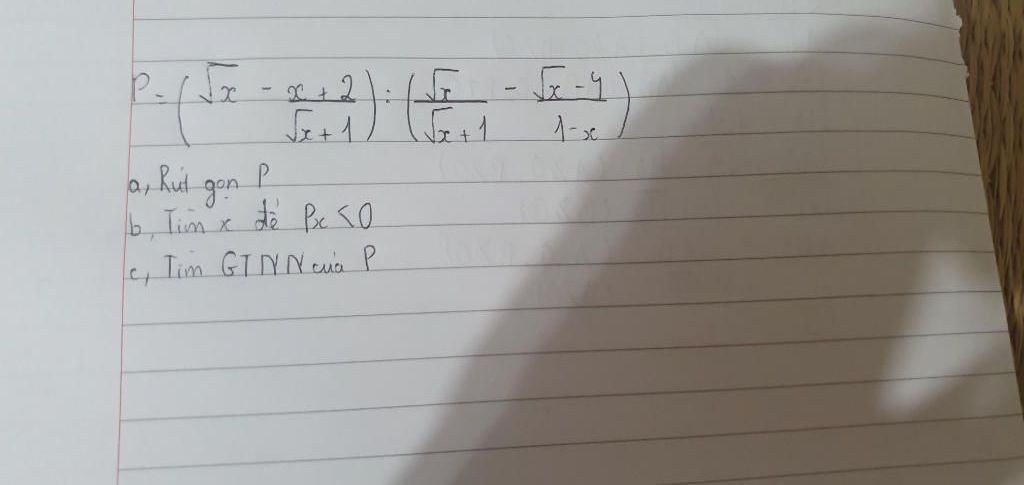 P = (√x - x + 2 / √x + 1) : (√x / √x + 1 - √x - 4 / 1 - x)
a, Rút gọn P
b, Tìm x để Px < 0
c, Tìm GTNN của P